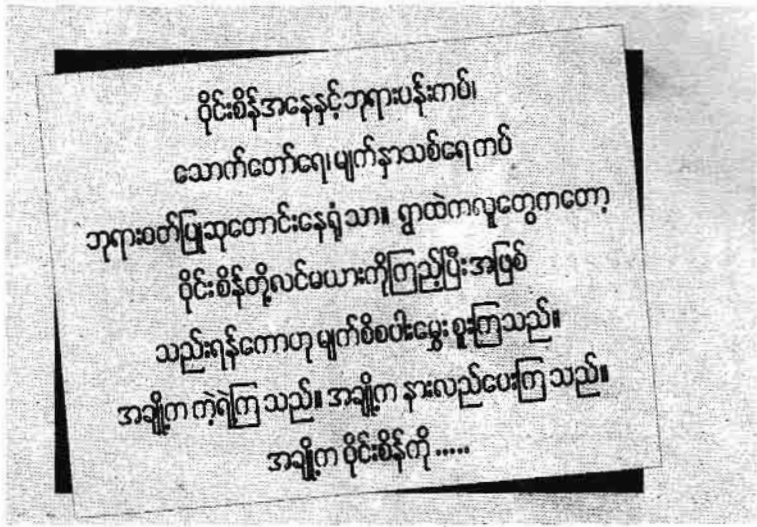 ဝိုင်းစိန်အနေနှင့်ဘုရားပန်းကပ်၊
သောက်တော်ရေ၊ မျက်နှာသစ်ရေ ကပ်
ဘုရားဝတ်ပြုဆုတောင်းနေရုံသာ။ ရွာထဲကလူတွေကတော့
ဝိုင်းစိန်တို့လင်မယားကိုကြည့်ပြီး အဖြစ်
သည်းရန်ကောဟု မျက်စိစပါးမွှေး စူးကြသည်။
အချို့က ကဲ့ရဲ့ကြ သည်။ အချို့က နားလည်ပေးကြ သည်။
အချို့က ဝိုင်းစိန်ကို .....